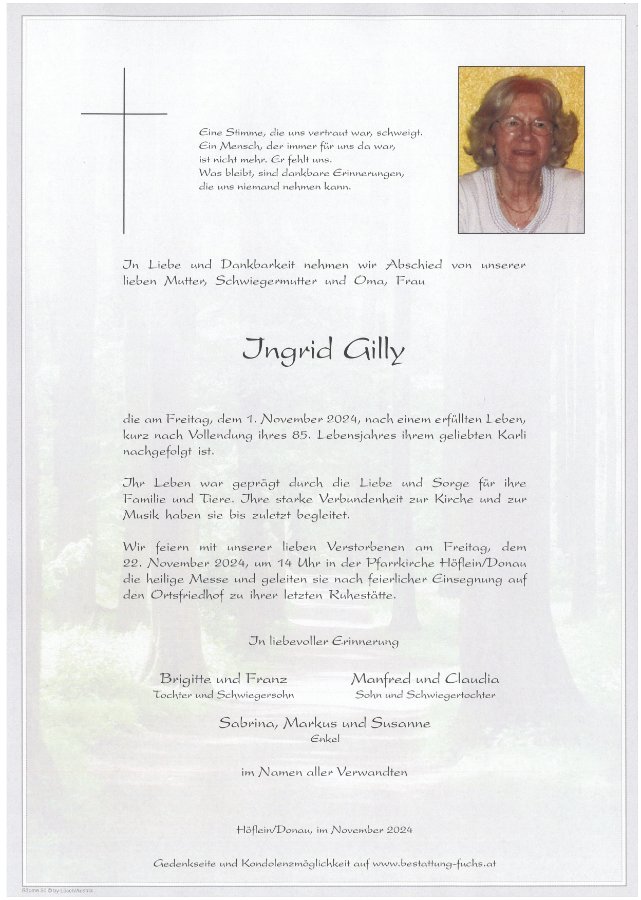 Eine Stimme, die uns vertraut war, schweigt.
Ein Mensch, der immer für uns da war,
ist nicht mehr. Er fehlt uns.
Was bleibt, sind dankbare Erinnerungen,
die uns niemand nehmen kann.
In Liebe und Dankbarkeit nehmen wir Abschied von unserer
lieben Mutter, Schwiegermutter und Oma, Frau
Ingrid Gilly
die am Freitag, dem 1. November 2024, nach einem erfüllten Leben,
kurz nach Vollendung ihres 85. Lebensjahres ihrem geliebten Karli
nachgefolgt ist.
Ihr Leben war geprägt durch die Liebe und Sorge für ihre
Familie und Tiere. Ihre starke Verbundenheit zur Kirche und zur
Musik haben sie bis zuletzt begleitet.
Wir feiern mit unserer lieben Verstorbenen am Freitag, dem
22. November 2024, um 14 Uhr in der Pfarrkirche Höflein/Donau
die heilige Messe und geleiten sie nach feierlicher Einsegnung auf
den Ortsfriedhof zu ihrer letzten Ruhestätte.
In liebevoller Erinnerung
Brigitte und Franz
Tochter und Schwiegersohn
Manfred und Claudia
Sohn und Schwiegertochter
Sabrina, Markus und Susanne
Enkel
im Namen aller Verwandten
Höflein/Donau, im November 2024
Gedenkseite und Kondolenzmöglichkeit auf www.bestattung-fuchs.at